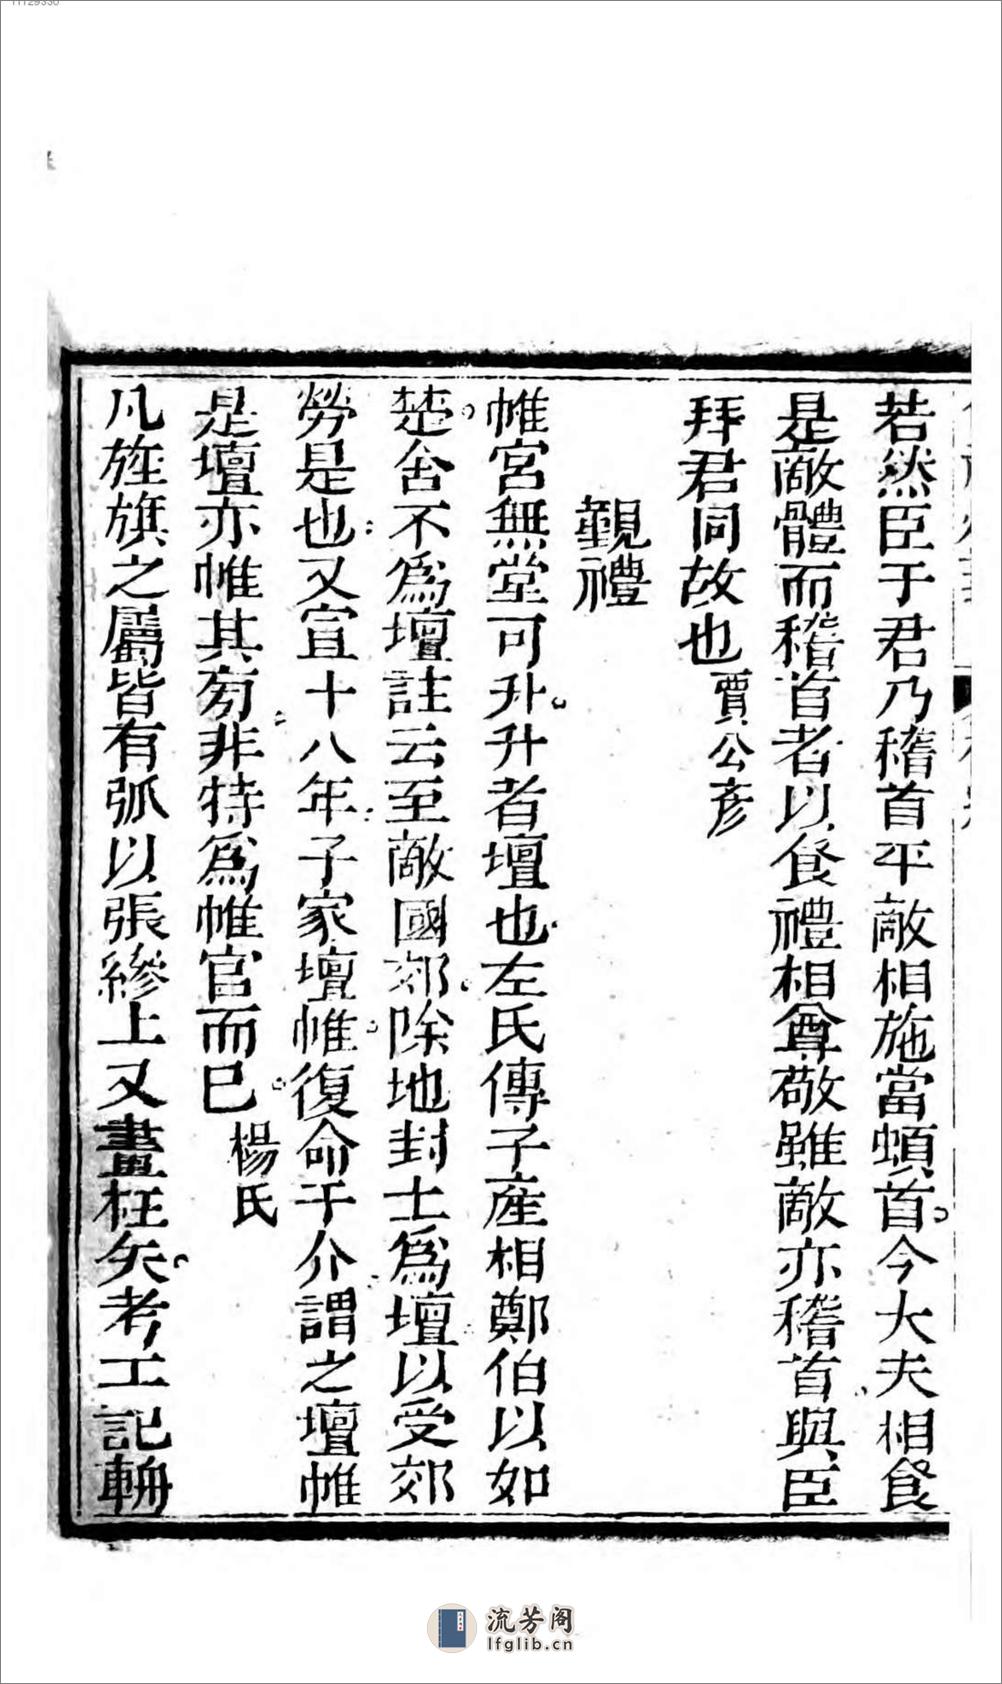 若然臣于君乃稽首平敵相施當頓首今大夫相食
是敵體而稽首者以食禮相尊敬雖敵亦稽首與臣
拜君同故也賈公彥
覲禮
帷宮無堂可升升者壇也左氏傳子產相鄭伯以如
楚舍不爲壇註云至敵國郊除地封土爲壇以受郊
勞是也又宣十八年子家壇帷復命于介謂之壇帷
是壇亦帷其旁非特爲帷宮而已楊氏
凡旌旗之屬皆有弧以張縿上又畫枉矢考工記輈
流芳阁
lfglib.cn